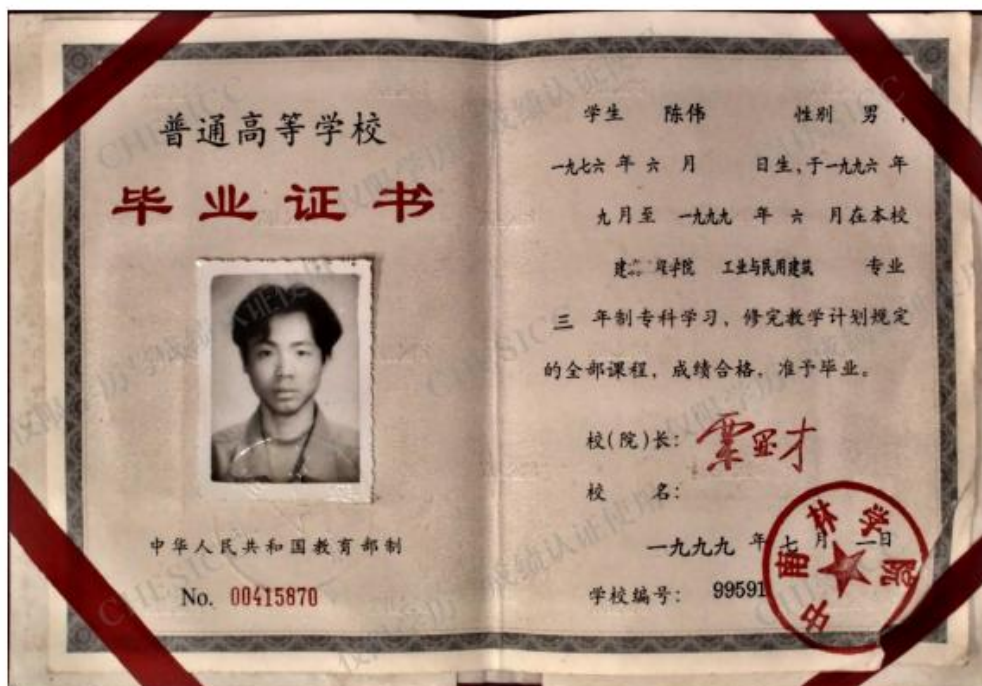 普通高等学校
毕业证书
中华人民共和国教育部制
No. 00415870
学生 陈伟 性别 男,
一九七六 年 六 月 日生,于一九九六 年
九 月至 一九九九 年 六 月在本校
建 学院 工业与民用建筑 专业
三 年制专科学习, 修完教学计划规定
的全部课程, 成绩合格, 准予毕业。
校(院)长:
校 名:
一九九九 年 七 月 一日
学校编号: 99591
中南林学院
CHESICC
仅限学历学成绩认证使用